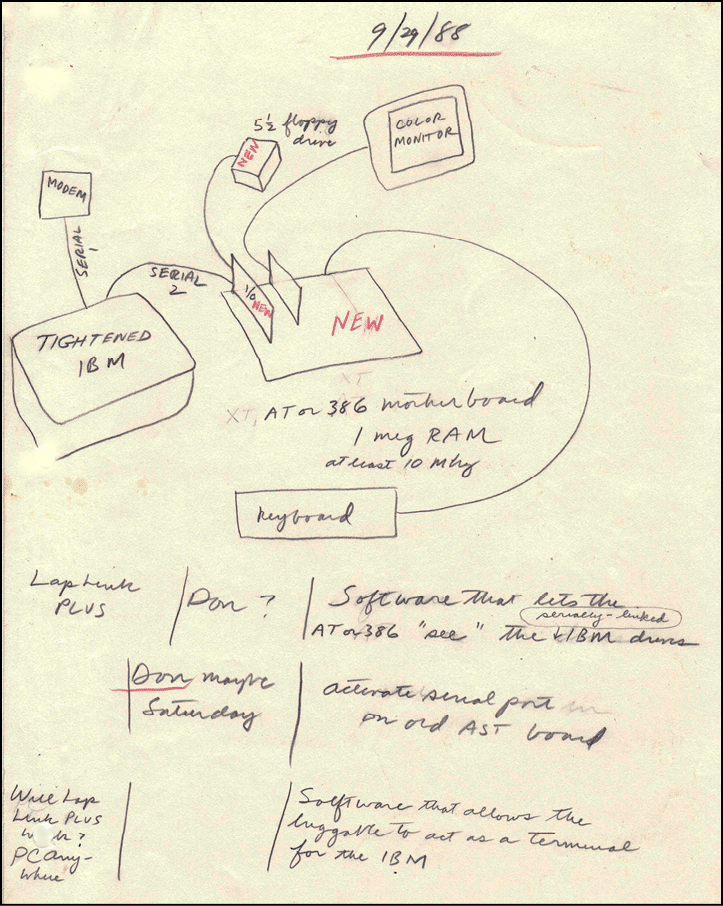 9/29/88
5½ floppy
drive
NEW
COLOR
MONITOR
MODEM
SERIAL
1
SERIAL
2
I/O
NEW
NEW
TIGHTENED
IBM
XT
XT, AT or 386 motherboard
1 meg RAM
at least 10 Mhz
keyboard
Lap Link
PLUS
Don ?
Software that lets the
serially-linked
AT or 386 "see" the IBM drives
Don maybe
Saturday
activate serial port
on old AST board
Will Lap
Link PLUS
work?
PC Any-
where
Software that allows the
luggable to act as a terminal
for the IBM